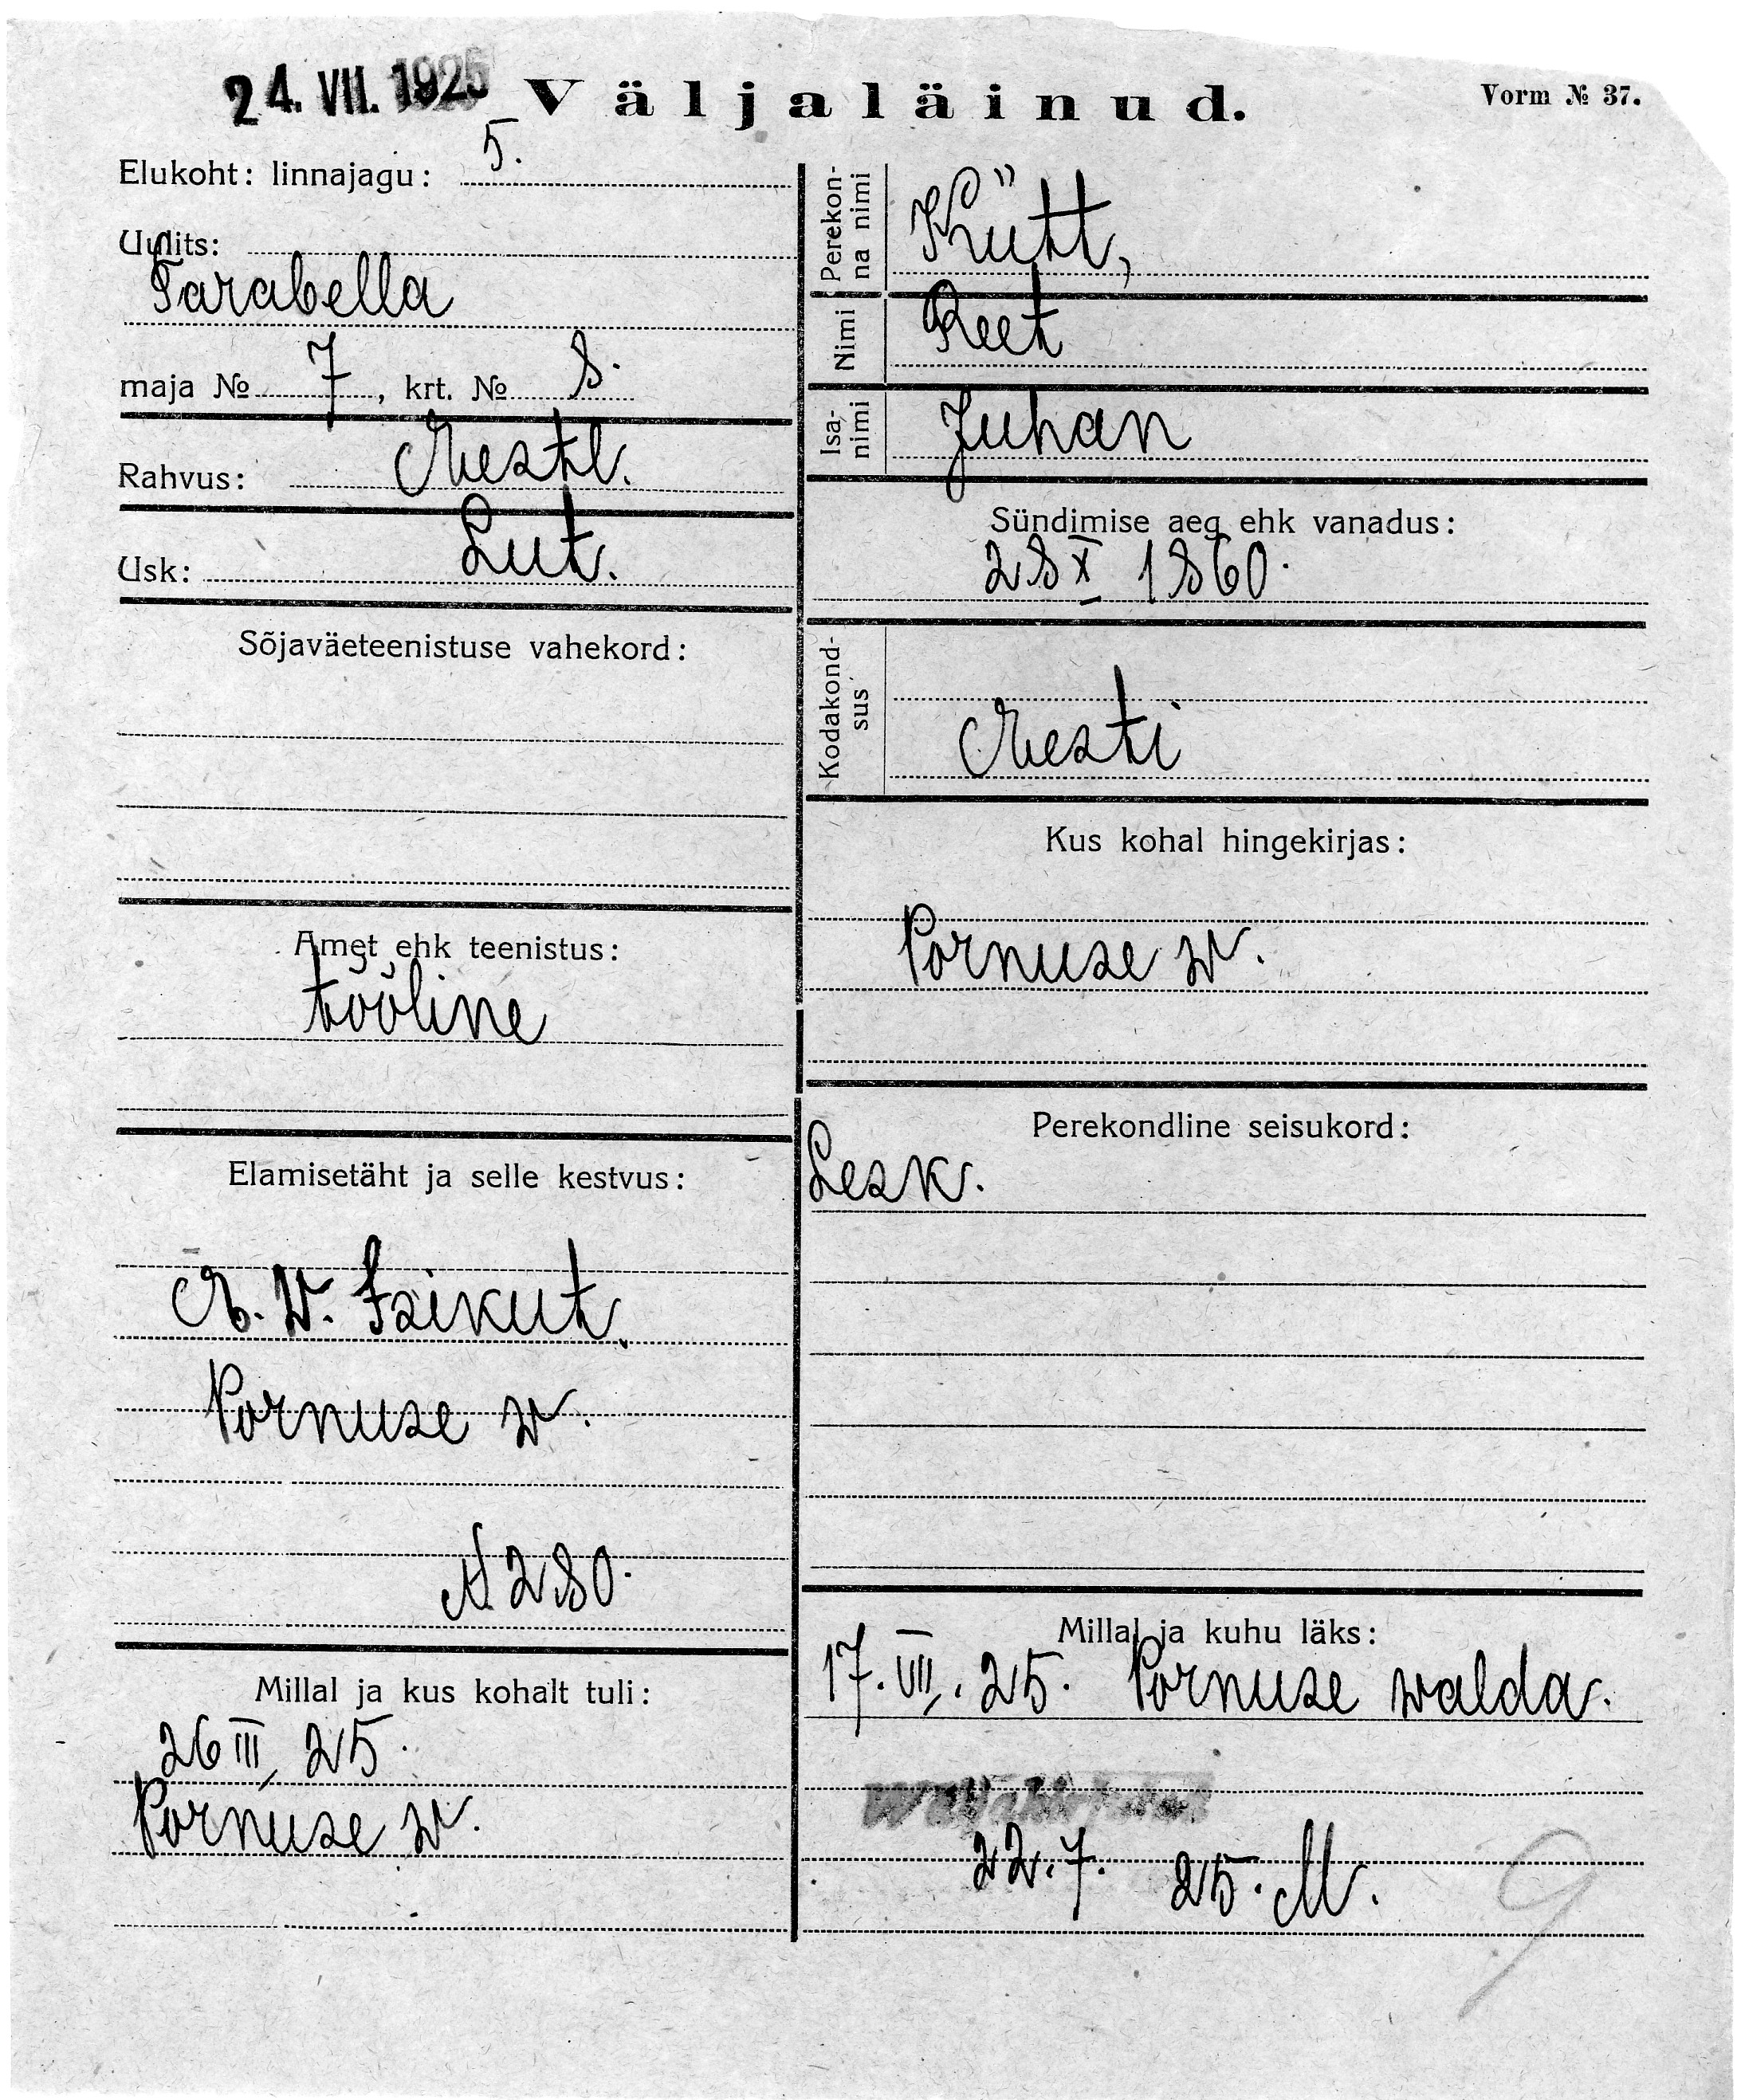 24. VII. 1925 Väljaläinud. Vorm № 37.
Elukoht: linnajagu: 5.
Uulits:
Tarabella
maja № 7, krt. № 8.
Rahvus: Eestl.
Usk: Lut.
Sõjaväeteenistuse vahekord:
Amet ehk teenistus:
tööline
Elamisetäht ja selle kestvus:
E. W. Isikut.
Pornuse w.
N 280.
Millal ja kus kohalt tuli:
26 III 25.
Pornuse w.
Perekon-
na nimi
Kütt,
Nimi Reet
Isa-
nimi
Juhan
Sündimise aeg ehk vanadus:
28 X 1860.
Kodakond-
sus
Eesti
Kus kohal hingekirjas:
Pornuse w.
Perekondline seisukord:
Lesk.
Millal ja kuhu läks:
17. VII. 25. Pornuse walda.
22. 7. 25. M.
9